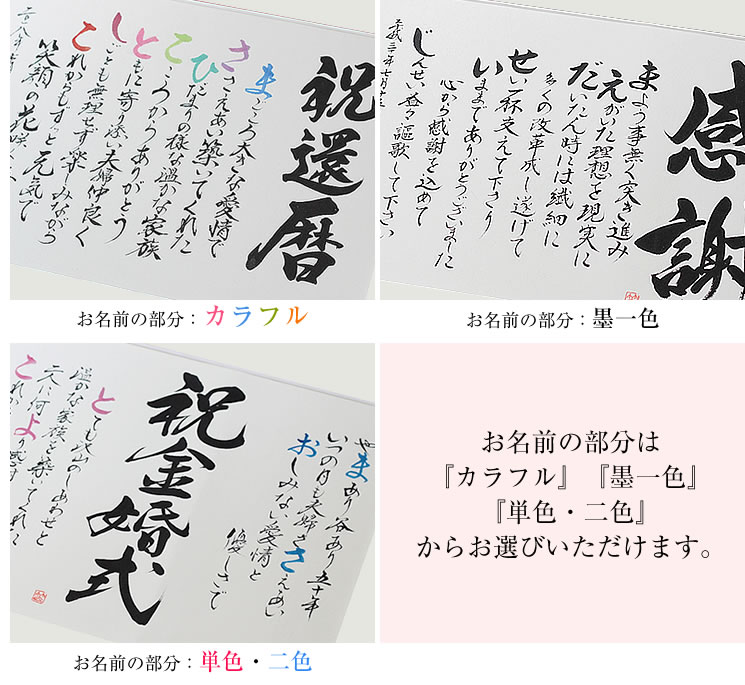 祝還暦
まごころ大きな愛情で
ささえあい築いてくれた
ひだまりの様な温かな家族
こころからありがとう
ともに寄り添い夫婦仲良く
しごとも無理せず楽しみながら
これからもずっと元気で
笑顔の花咲く
お名前の部分：カラフル
感謝
まよう事無く突き進み
えがいた理想を現実に
だいたん時には繊細に
多くの改革成し遂げて
せい一杯支えて下さり
いままでありがとうございました
心から感謝を込めて
じんせい益々謳歌して下さい
お名前の部分：墨一色
やまあり谷あり五十年
いつの日も夫婦ささえあい
おしみない愛情と
優しさで
祝金婚式
とても沢山のしあわせと
温かな家族を築いてくれた
お名前の部分：単色・二色
お名前の部分は
『カラフル』『墨一色』
『単色・二色』
からお選びいただけます。